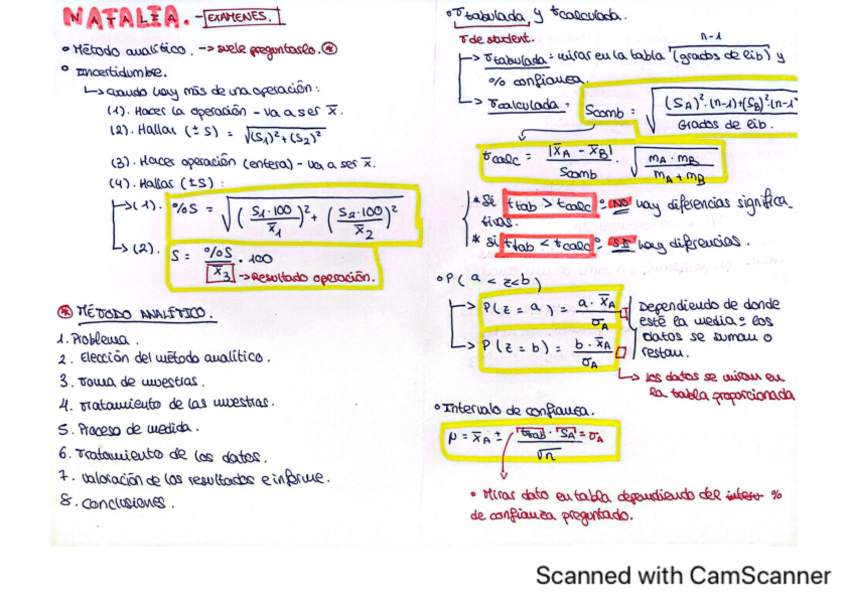 NATALIA. - EXÁMENES.
• Método analítico. -> suele preguntarlo. *
• Incertidumbre.
↳ cuando hay más de una operación:
(1). Hacer la operación - va a ser x̄.
(2). Hallar (± s) = √(S1)² + (S2)²
(3). Hacer operación (entera) - va a ser x̄.
(4). Hallas (± s) :
↳ (1). %S = √( S1·100 / x̄1 )² + ( S2·100 / x̄2 )²
↳ (2). S = %S / x̄3 · 100
-> Resultado operación.
* MÉTODO ANALÍTICO.
1. Problema.
2. Elección del método analítico.
3. Toma de muestras.
4. Tratamiento de las muestras.
5. Proceso de medida.
6. Tratamiento de los datos.
7. Valoración de los resultados e informe.
8. Conclusiones.
• T tabulada y t calculada.
T de student.
n-1
-> T tabulada = mirar en la tabla (grados de lib) y
% confianza.
-> T calculada = Scomb = √ (SA)²·(n-1)+(SB)²·(n-1 / Grados de lib.
t calc = |x̄A - x̄B| / Scomb · √ mA · mB / mA + mB
* Si t tab > t calc : NO hay diferencias significa_
tivas.
* si t tab < t calc : SI hay diferencias.
• P( a < z < b )
-> P( z = a ) = a · x̄A / σA
-> P( z = b ) = b · x̄A / σA
Dependiendo de donde
esté la media = los
datos se suman o
restan.
↳ los datos se miran en
la tabla proporcionada
• Intervalo de confianza.
μ = x̄A ± t tab · SA = σA / √n
• Mirar dato en tabla dependiendo del %
de confianza preguntado.
Scanned with CamScanner